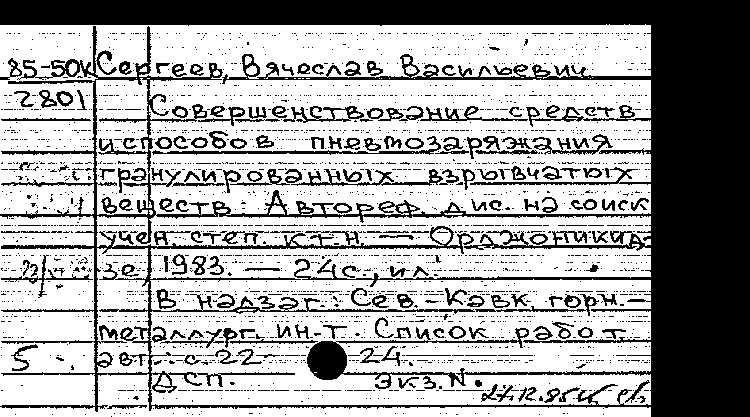 85-50к Сергеев, Вячеслав Васильевич
2801 Совершенствование средств
и способов пневмозаряжания
гранулированных взрывчатых
веществ: Автореф. дис. на соиск
учен. степ. к.т.н. — Орджоникид-
зе, 1983. — 24с., ил.
В надзаг.: Сев.-Кавк. горн.-
металлург. ин-т. Список работ
5 авт.: с. 22-24.
ДСП. Экз. N
27.12.85